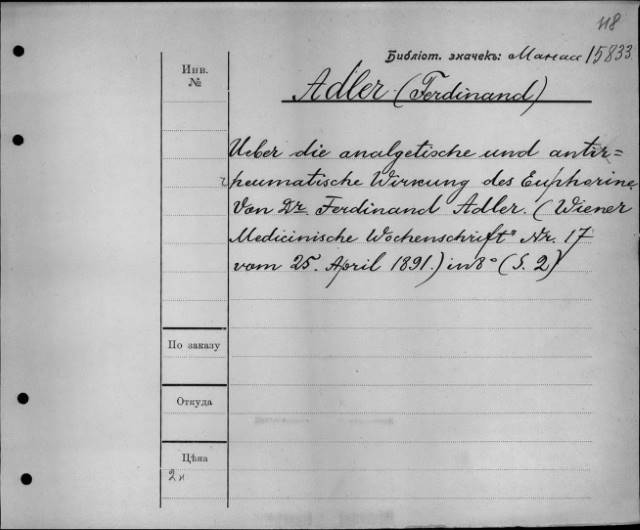 118
Библіот. значекъ: Манасс 15833.
Инв.
№
Adler (Ferdinand)
Ueber die analgetische und antir=
heumatische Wirkung des Euphorins
Von Dr. Ferdinand Adler. (Wiener
Medicinische Wochenschrift" Nr. 17
vom 25. April 1891.) in 8° (S. 2)
По заказу
Откуда
Цѣна